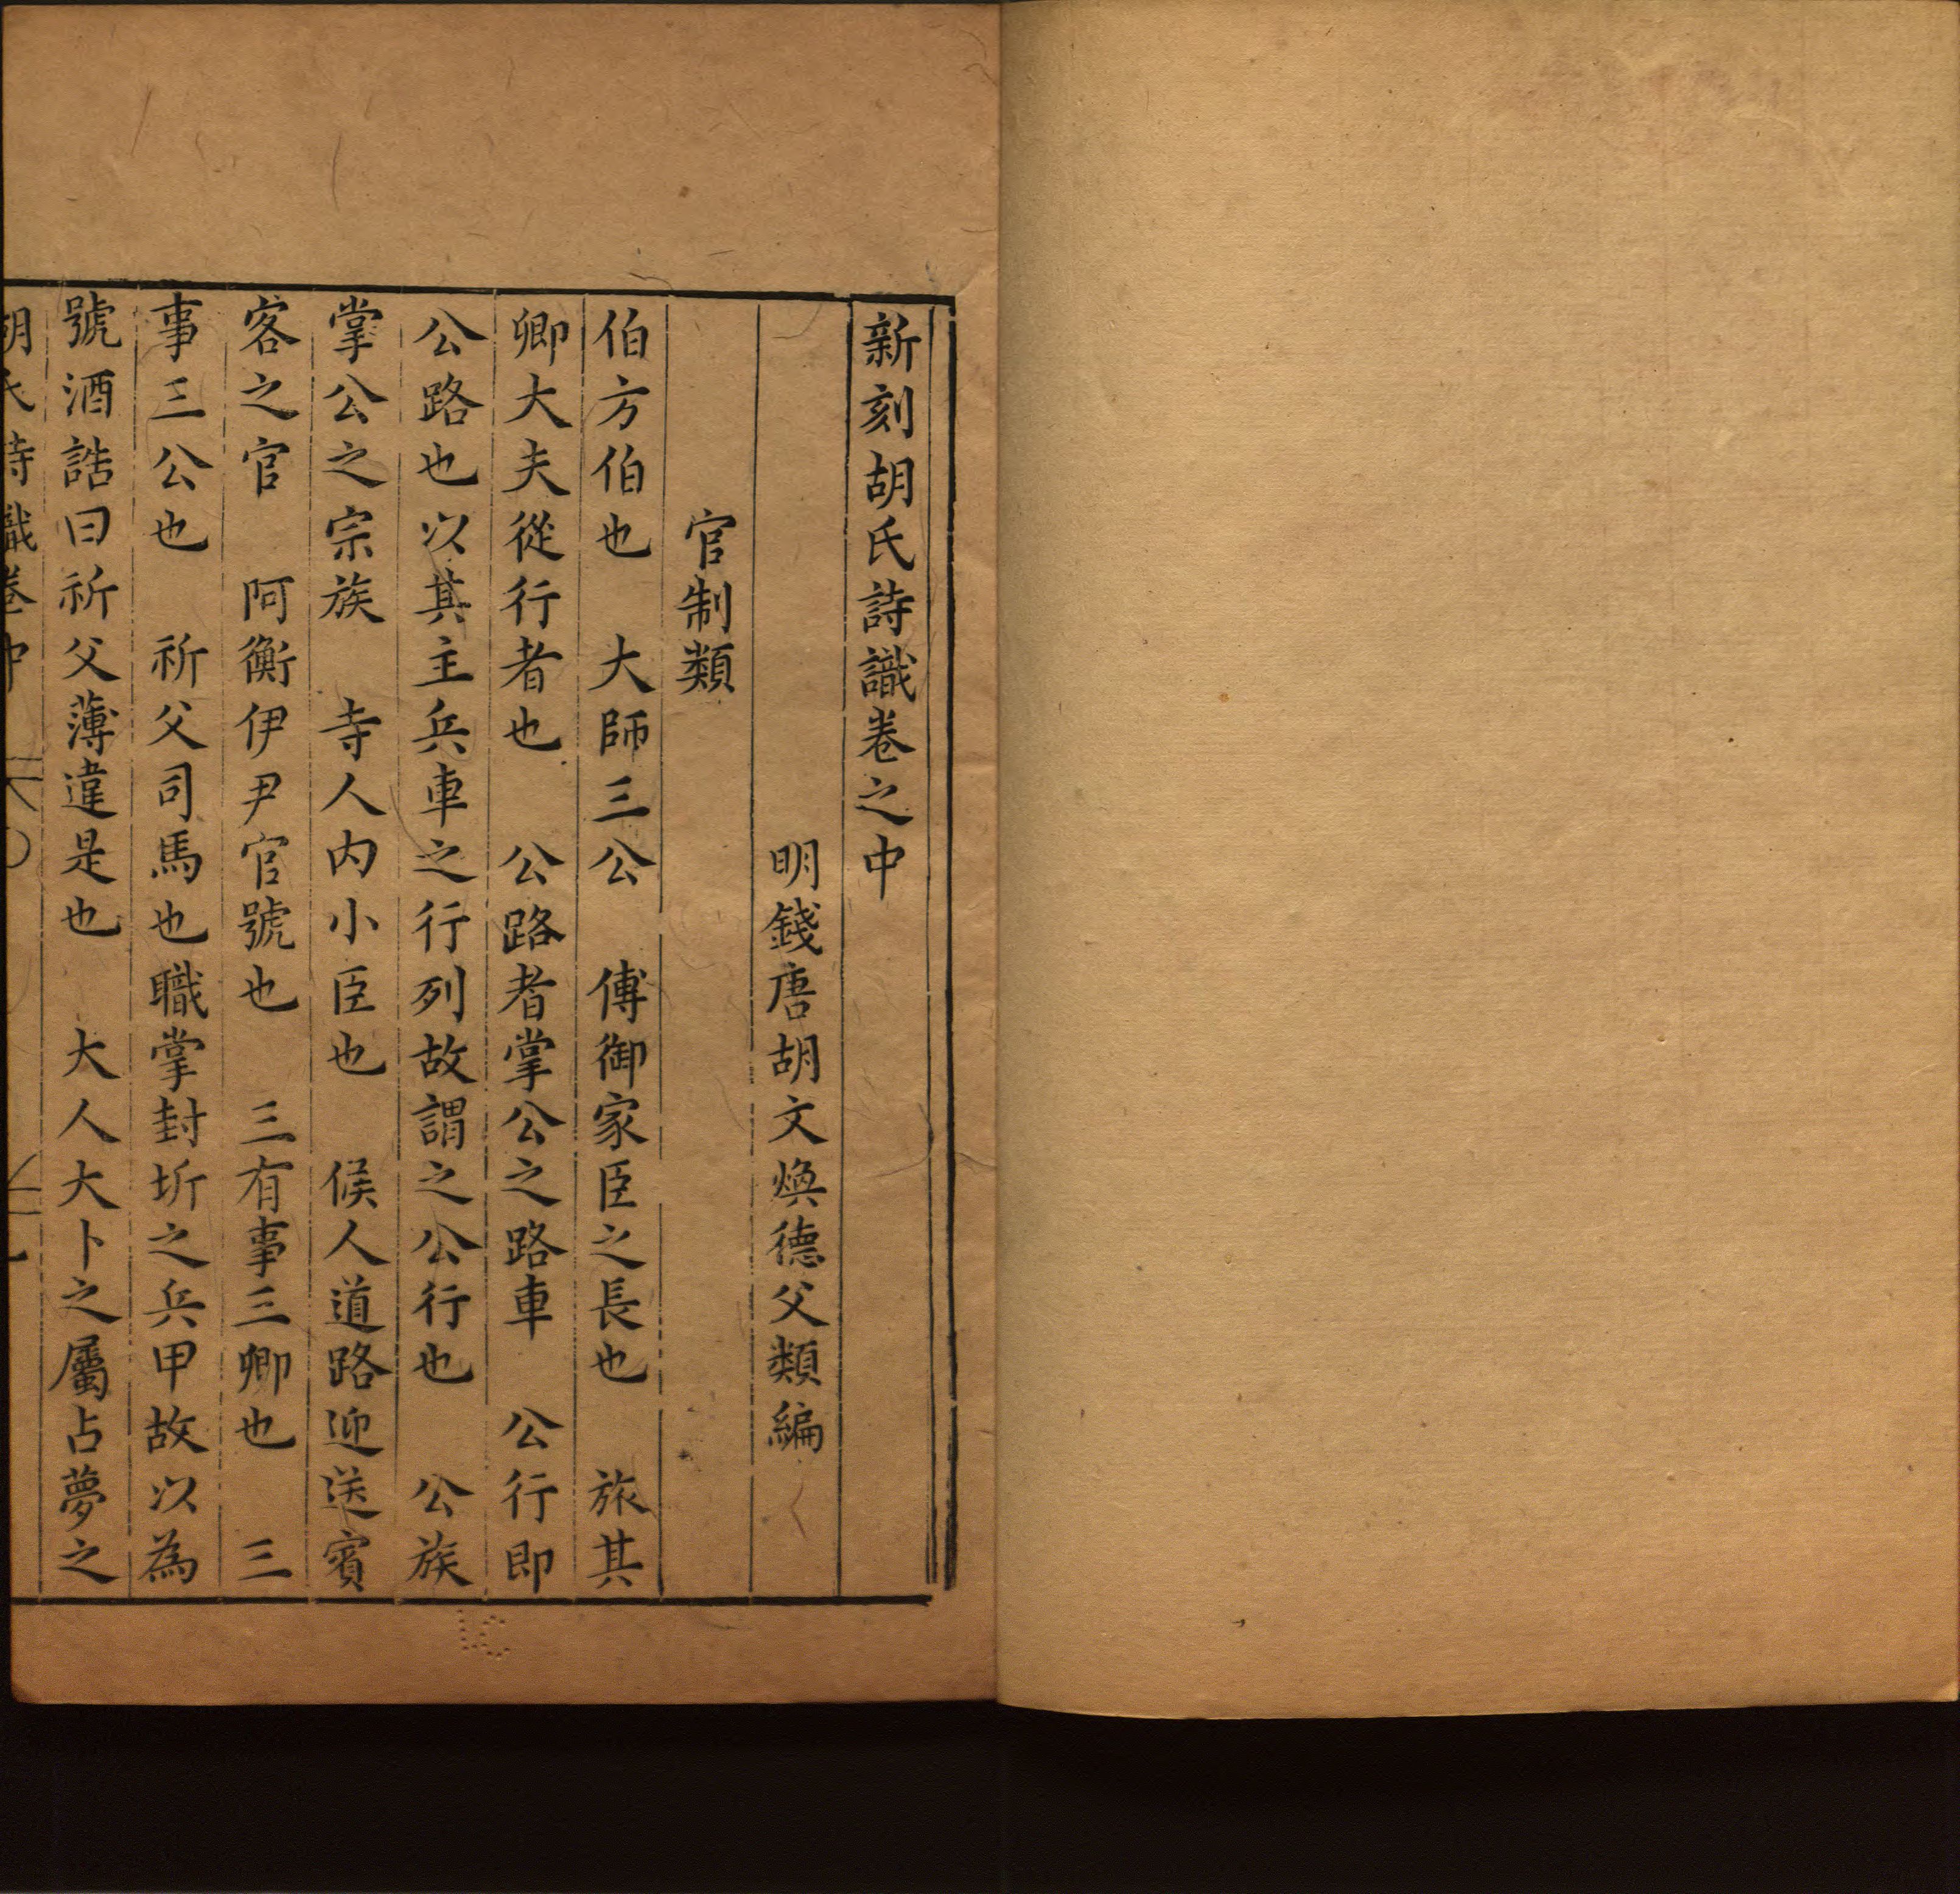 新刻胡氏詩識卷之中
明錢唐胡文煥德父類編
官制類
伯方伯也　大師三公　傅御家臣之長也　旅其
卿大夫從行者也　公路者掌公之路車　公行即
公路也以其主兵車之行列故謂之公行也　公族
掌公之宗族　寺人内小臣也　候人道路迎送賓
客之官　阿衡伊尹官號也　三有事三卿也　三
事三公也　祈父司馬也職掌封圻之兵甲故以為
號酒誥曰祈父薄違是也　大人大卜之屬占夢之
胡氏詩識卷中